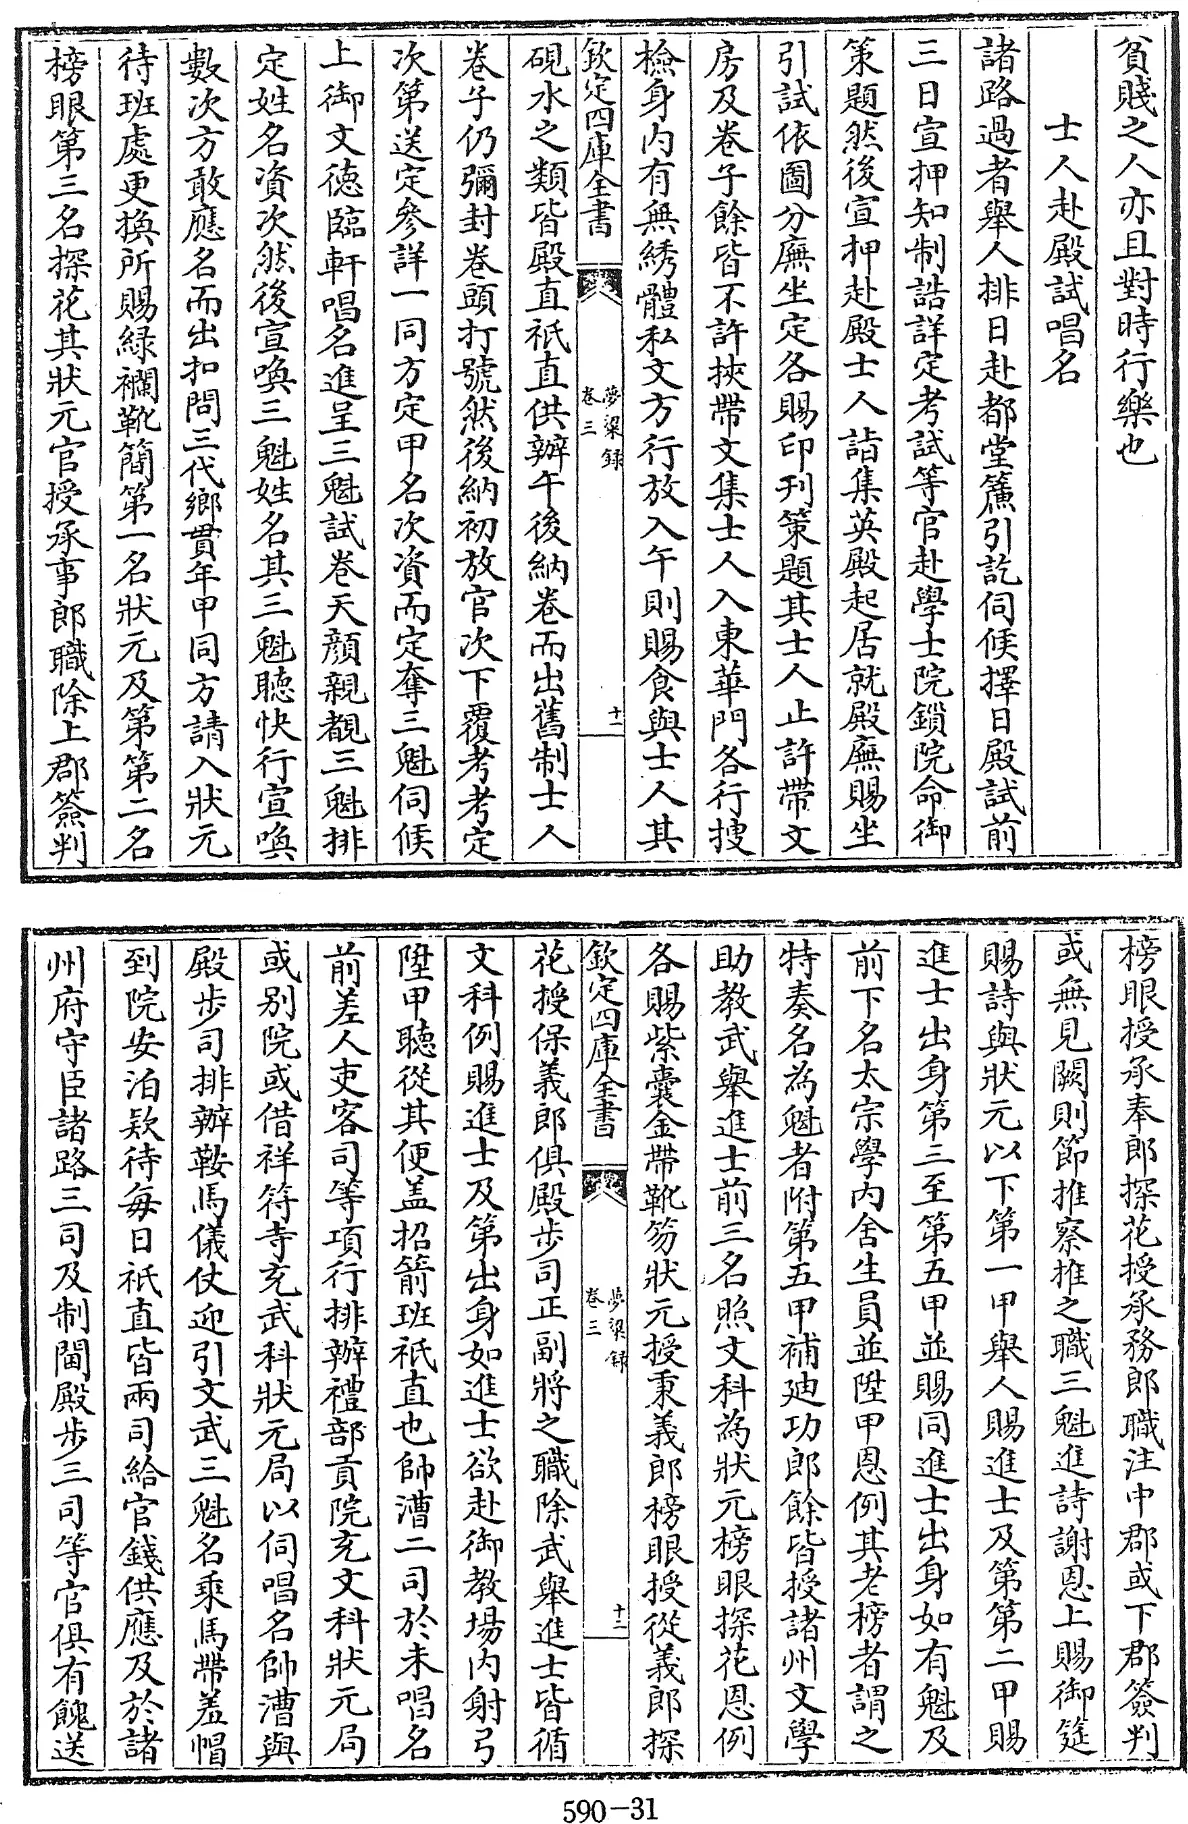 貧賤之人亦且對時行樂也
士人赴殿試唱名
諸路過者舉人排日赴都堂簾引訖伺候擇日殿試前
三日宣押知制誥詳定考試等官赴學士院鎖院命御
策題然後宣押赴殿士人詣集英殿起居就殿廡賜坐
引試依圖分廡坐定各賜印刊策題其士人止許帶文
房及卷子餘皆不許挾帶文集士人入東華門各行搜
檢身内有無綉體私文方行放入午則賜食與士人其
欽定四庫全書
夢粱録
卷三
十一
硯水之類皆殿直祇直供辦午後納卷而出舊制士人
卷子仍彌封卷頭打號然後納初放官次下覆考考定
次第送定參詳一同方定甲名次資而定奪三魁伺候
上御文德臨軒唱名進呈三魁試卷天顔親覩三魁排
定姓名資次然後宣喚三魁姓名其三魁聽快行宣喚
數次方敢應名而出扣問三代鄉貫年甲同方請入狀元
待班處更換所賜緑襴靴簡第一名狀元及第第二名
榜眼第三名探花其狀元官授承事郎職除上郡簽判
榜眼授承奉郎探花授承務郎職注中郡或下郡簽判
或無見闕則節推察推之職三魁進詩謝恩上賜御筵
賜詩與狀元以下第一甲舉人賜進士及第第二甲賜
進士出身第三至第五甲並賜同進士出身如有魁及
前下名太宗學内舍生員並陞甲恩例其老榜者謂之
特奏名為魁者附第五甲補廸功郎餘皆授諸州文學
助教武舉進士前三名照文科為狀元榜眼探花恩例
各賜紫囊金帶靴笏狀元授秉義郎榜眼授從義郎探
欽定四庫全書
夢粱録
卷三
十二
花授保義郎俱殿步司正副將之職除武舉進士皆循
文科例賜進士及第出身如進士欲赴御教場内射弓
陞甲聽從其便盖招箭班祇直也帥漕二司於未唱名
前差人吏客司等項行排辦禮部貢院充文科狀元局
或别院或借祥符寺充武科狀元局以伺唱名帥漕與
殿步司排辦鞍馬儀仗迎引文武三魁名乘馬帶羞帽
到院安泊欵待每日祇直皆兩司給官錢供應及於諸
州府守臣諸路三司及制閫殿步三司等官俱有餽送
590-31